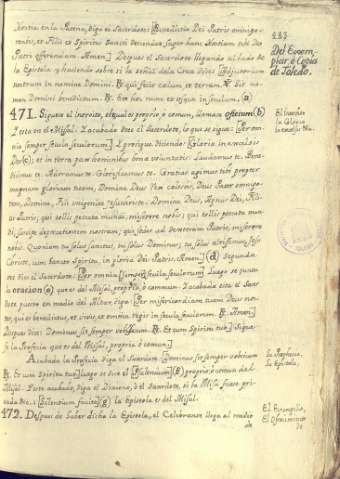 Hostia en la Patena, diga el Sacerdote: [Benedictio Dei Patris omnipo-
tentis, et Filii et Spiritus Sancti descendat super hanc Hostiam tibi Deo
Patri offerendam. Amen] Despues el Sacerdote llegando al lado de
la Epistola, y haciendo sobre si la señal de la Cruz dice: [Adjutorium
nostrum in nomine Domini. ℟. qui fecit cælum, et terram. ℣. Sit no-
men Domini benedictum. ℟. Ex hoc nunc et usque in seculum. (a)
471. Sigue el Introito, el qual es proprio, ò comun, llamase oficium (b)
y esta en el Missal. Y acabado dice el Sacerdote, lo que se sigue: [Per om-
nia semper secula seculorum] y prosigue diciendo: [Gloria in excelsis
Deo (c), et in terra pax hominibus bonæ voluntatis. Laudamus te. Bene-
dicimus te. Adoramus te. Glorificamus te. Gratias agimus tibi propter
magnam gloriam tuam, Domine Deus Rex cælestis, Deus Pater omnipo-
tens, Domine, Fili unigenite Jesu Christe. Domine Deus, Agnus Dei, Fili-
us Patris, qui tollis peccata mundi, miserere nobis; qui tollis peccata mun-
di, suscipe deprecationem nostram; qui sedes ad dexteram Patris, miserere
nobis. Quoniam tu solus sanctus, tu solus Dominus, tu solus altissimus, Jesu
Christe, cum Sancto Spiritu, in gloria Dei Patris. Amen] (d) segunda
vez dice el Sacerdote: [Per omnia semper secula seculorum] Luego se junta
la oracion (e) que es del Missal, propria, ò comun. Y acabada esta el Sacer-
dote puesto en medio del Altar, diga: [Per misericordiam tuam Deus nos-
ter, qui es benedictus, et vivis, et omnia regis in secula seculorum. ℟. Amen]
Despues dice: Dominus sit semper vobiscum. ℟. Et cum Spiritu tuo] Sigue
se la Profecia que es del Missal, propria, ò comun.]
Acabada la Profecia diga el Sacerdote [Dominus sit semper vobiscum
℟. Et cum Spiritu tuo] luego se dice el [Psallendum] (f) proprio, ò comun del
Missal. Este acabado, diga el Diacono, ò el Sacerdote, si la Missa fuere pri-
vada &c.: [Silentium facite] (g) la Epistola es del Missal.
472. Despues de haber dicho la Epistola, el Celebrante llega al medio
de
483
Del Exem-
plar, ò Copia
de Toledo.
El Introito
La Gloria
La Profecia,
La Epistola,
El Evangelio,
El Ofrecimiento
de